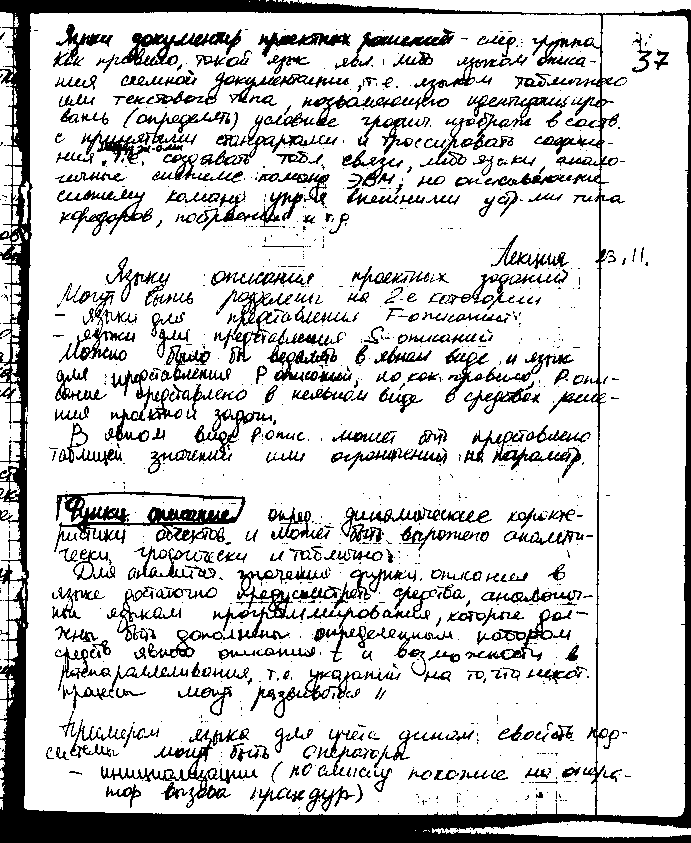 Языки документир проектных решений - след. группа
37
Как правило, такой язык явл. либо языком описа-
ния схемной документации, т.е. языком табличного
или текстового типа, позволяющего идентифициро-
вать (определить) условные графич. изображ в соотв.
с принятыми стандартами и трассировать соедине-
ния, т.е. создавать табл. связи, либо языки, анало-
гичные системе команд ЭВМ, но описывающие
систему команд упр-я внешними устр-ми типа
кордоров, построения и т.д.
Лекция 23.11.
Языки описания проектных заданий
Могут быть разделены на 2-е категории
- языки для представления F-описаний:
- языки для представления S-описаний
Можно было бы выделить в явном виде и язык
для представления P описаний, но, как правило, P. опи-
сание представлено в неявном виде в средствах реше-
ния проектной задачи.
В явном виде P опис. может быть представлено
таблицей значений или ограничений на параметр.
Функц. описание опред. динамические характе-
ристики объектов и может быть выражено аналити-
чески, графически и таблично
Для аналитич. значения функц. описания в
языке достаточно предусмотреть средства, аналогич-
ные языкам программирования, которые дол-
жны быть дополнены определенным набором
средств явного описания t и возможности в
распараллеливания, т.е. указаний на то, что некот.
процессы могут развиваться //
Примером языка для учёта динам. свойств под-
системы могут быть операторы
- инициализации (по смыслу похожие на опера-
тор вызова процедур)